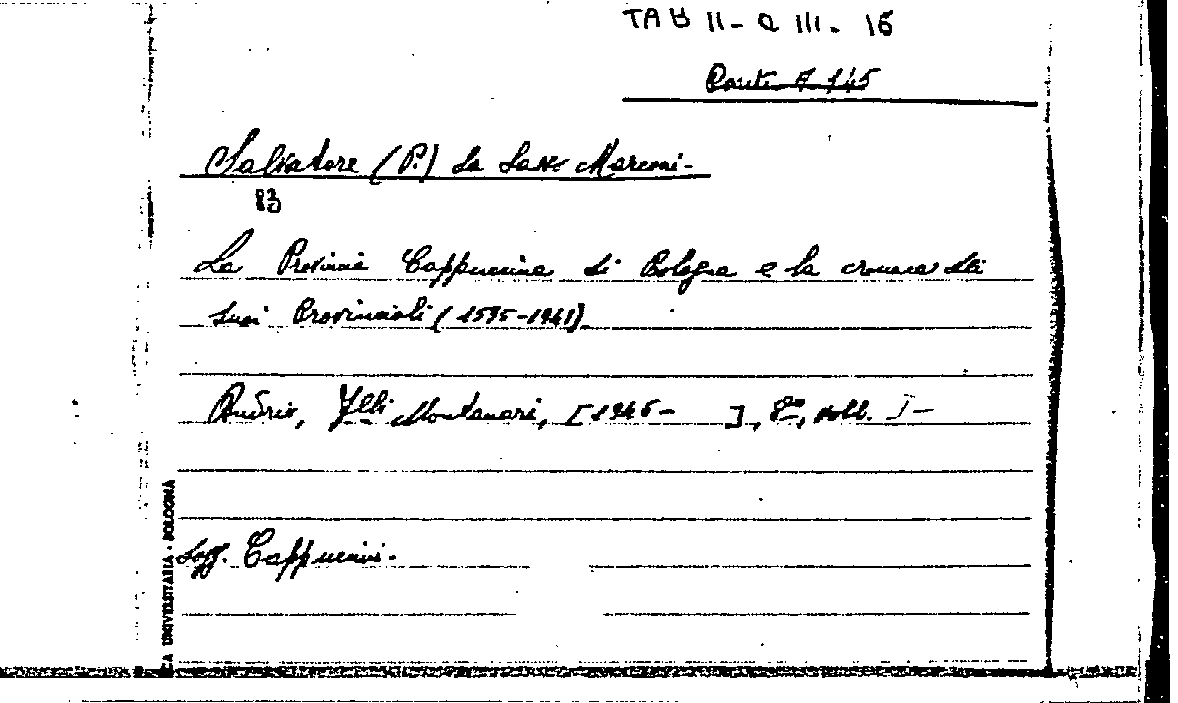 TAB II - Q III. 16
Cart. 7. 145
Salvatore (P.) da Sasso Marconi -
La Provincia Cappuccina di Bologna e la cronaca dei
suoi Provinciali (1535-1941)
Budrio, F.lli Montanari, [1946- ], 8°, voll. I-
Sogg. Cappuccini.
CA UNIVERSITARIA - BOLOGNA